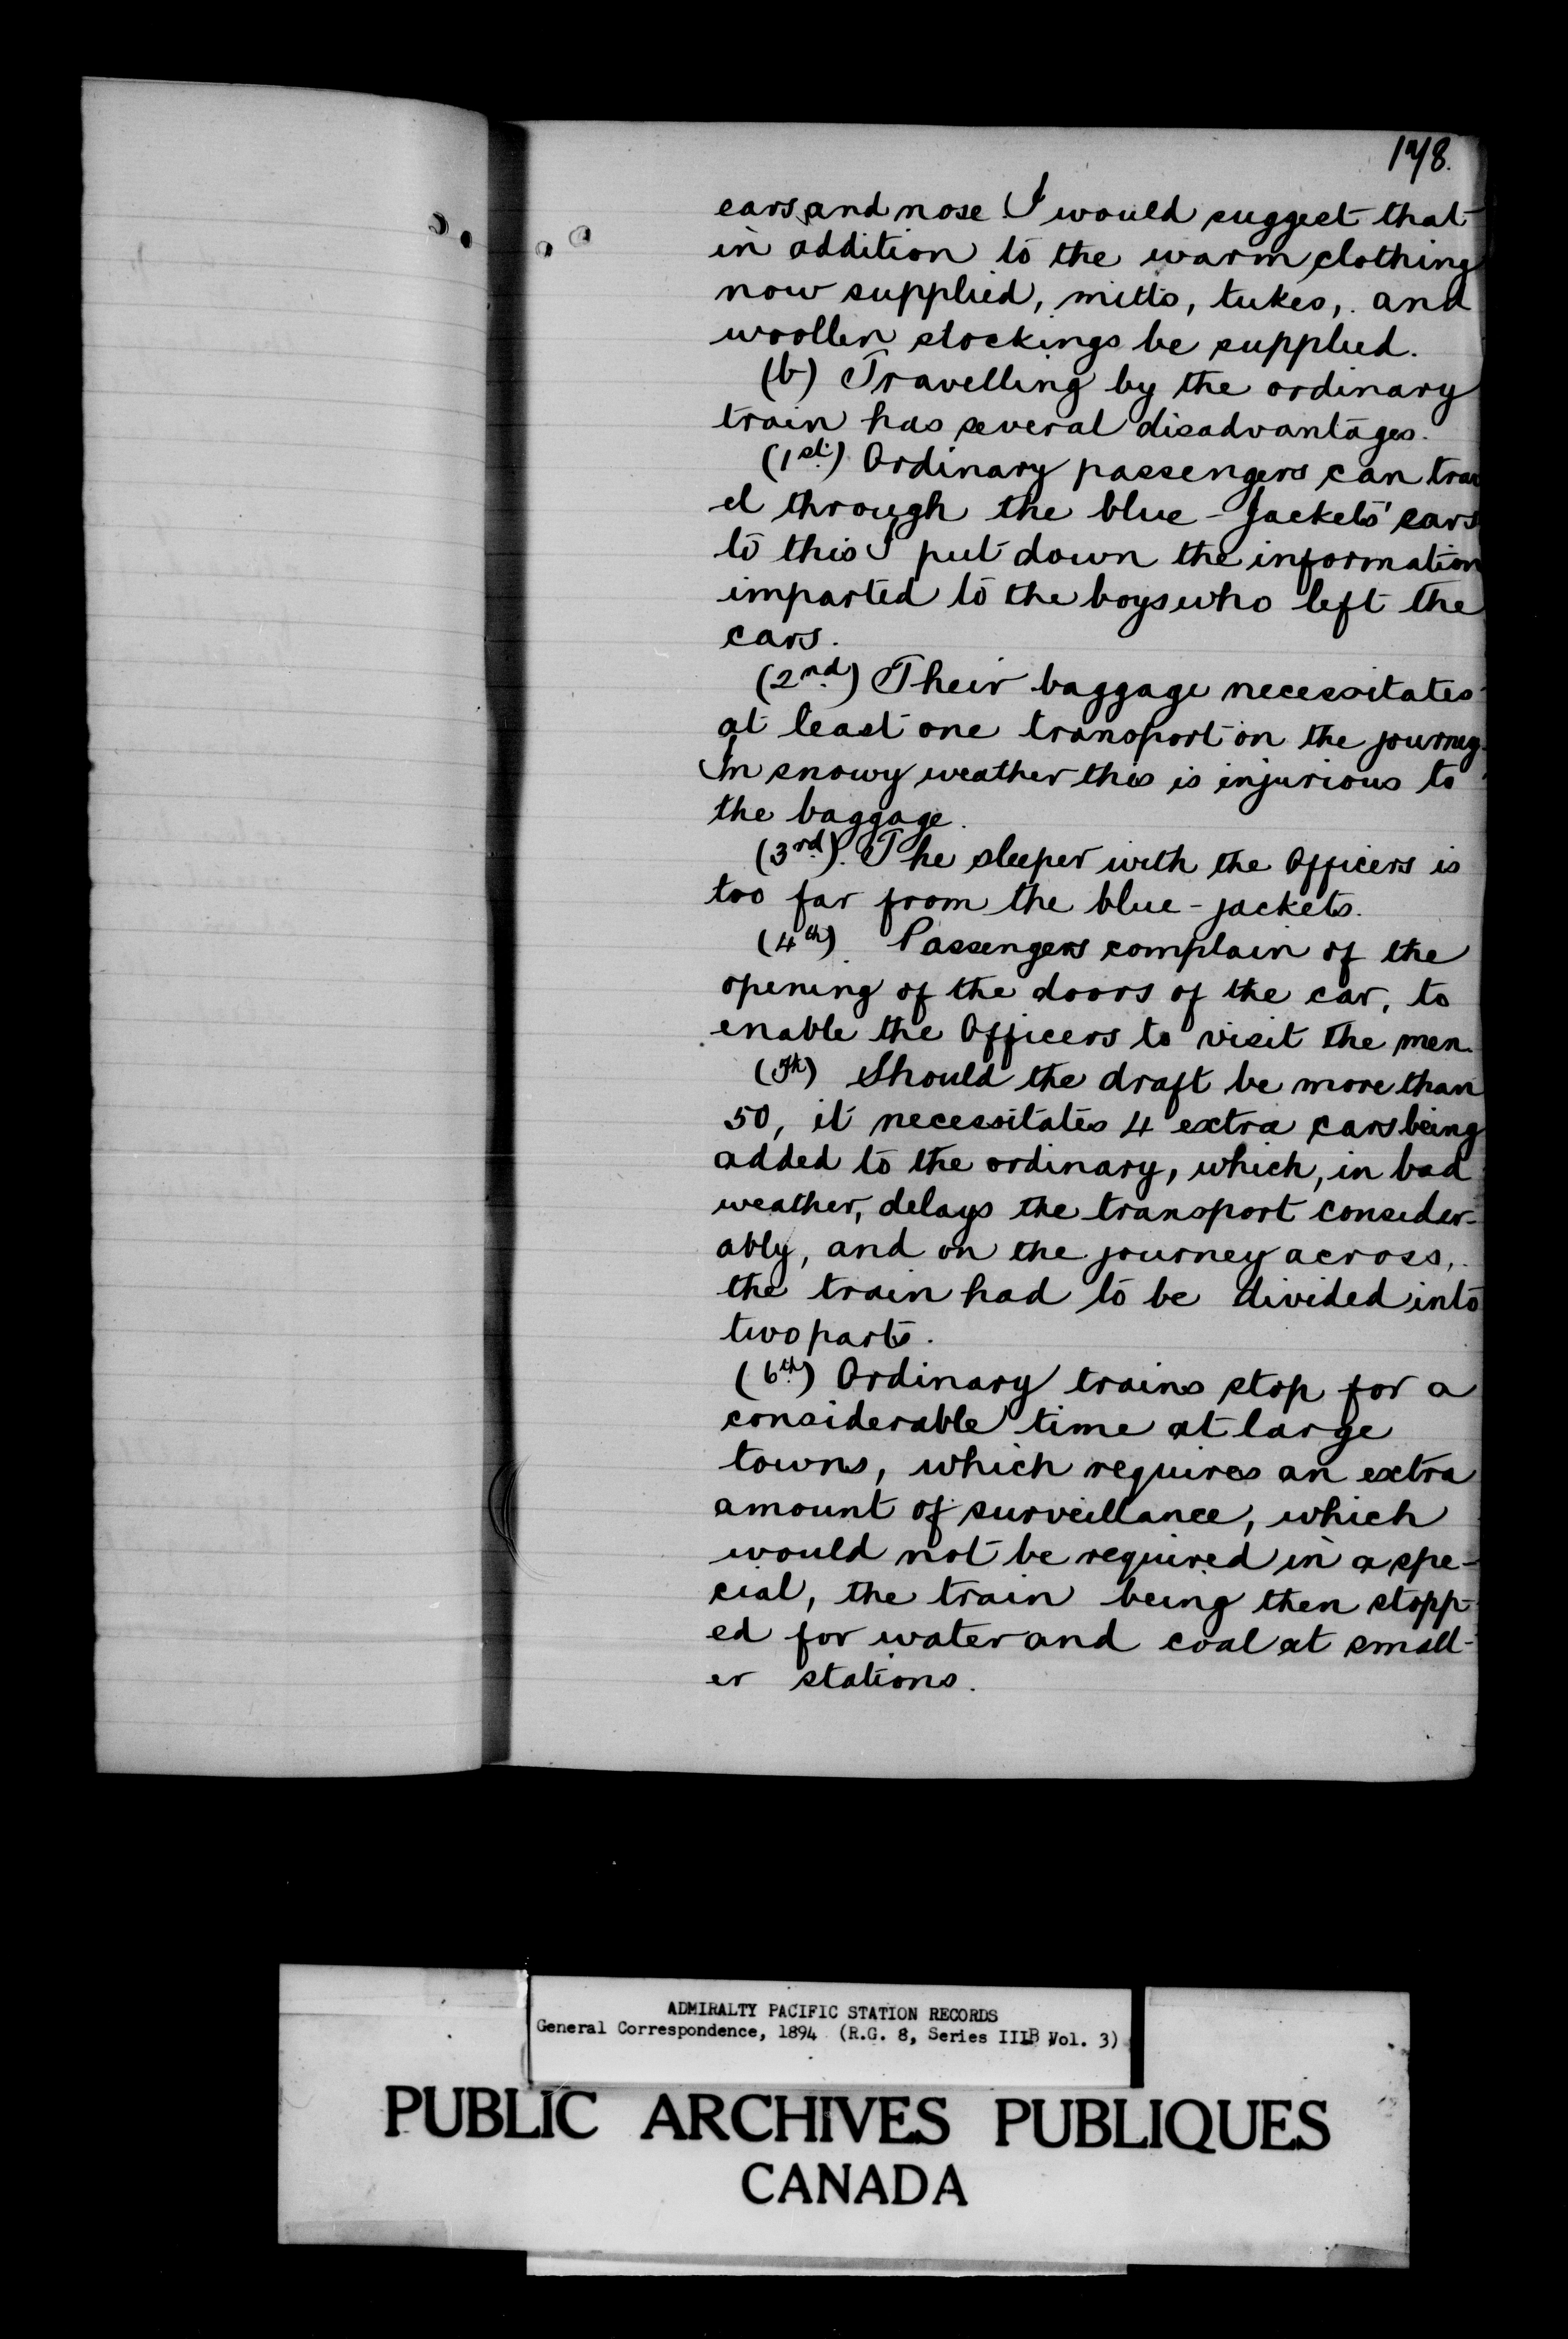 178.
ears and nose I would suggest that
in addition to the warm clothing
now supplied, mitts, tukes, and
woollen stockings be supplied.
(b) Travelling by the ordinary
train has several disadvantages.
(1st.) Ordinary passengers can trav
el through the blue-jackets' cars
to this I put down the information
imparted to the boys who left the
cars.
(2nd.) Their baggage necessitates
at least one transport on the journey.
In snowy weather this is injurious to
the baggage.
(3rd.). The sleeper with the Officers is
too far from the blue-jackets.
(4th). Passengers complain of the
opening of the doors of the car, to
enable the Officers to visit the men.
(5th) Should the draft be more than
50, it necessitates 4 extra cars being
added to the ordinary, which, in bad
weather, delays the transport consider-
ably, and on the journey across,
the train had to be divided into
two parts.
(6th.) Ordinary trains stop for a
considerable time at large
towns, which requires an extra
amount of surveillance, which
would not be required in a spe-
cial, the train being then stopp-
ed for water and coal at small-
er stations.
ADMIRALTY PACIFIC STATION RECORDS
General Correspondence, 1894 (R.G. 8, Series IIIB Vol. 3)
PUBLIC ARCHIVES PUBLIQUES
CANADA